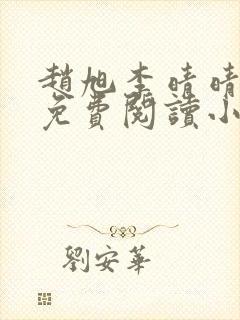 趙旭李晴晴
免費閱讀小
劉安華